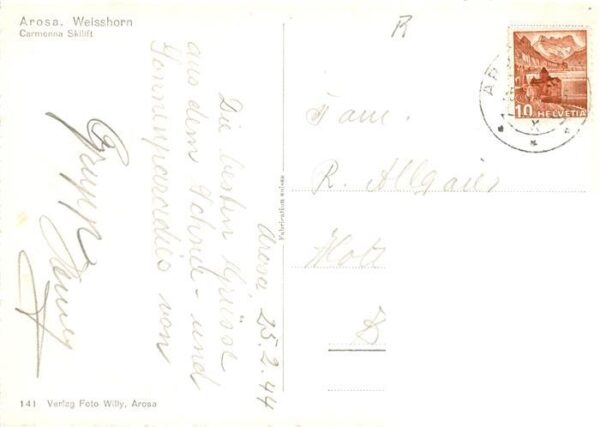 Arosa. Weisshorn
Carmenna Skilift
Die besten Grüsse
aus dem Schnee- und
Sonnenparadies von
Arosa 25.2.44
Grupp
Fabrication suisse
R
10 HELVETIA
AR
Fam.
R. Allgaier
Hot
B
141 Verlag Foto Willy, Arosa